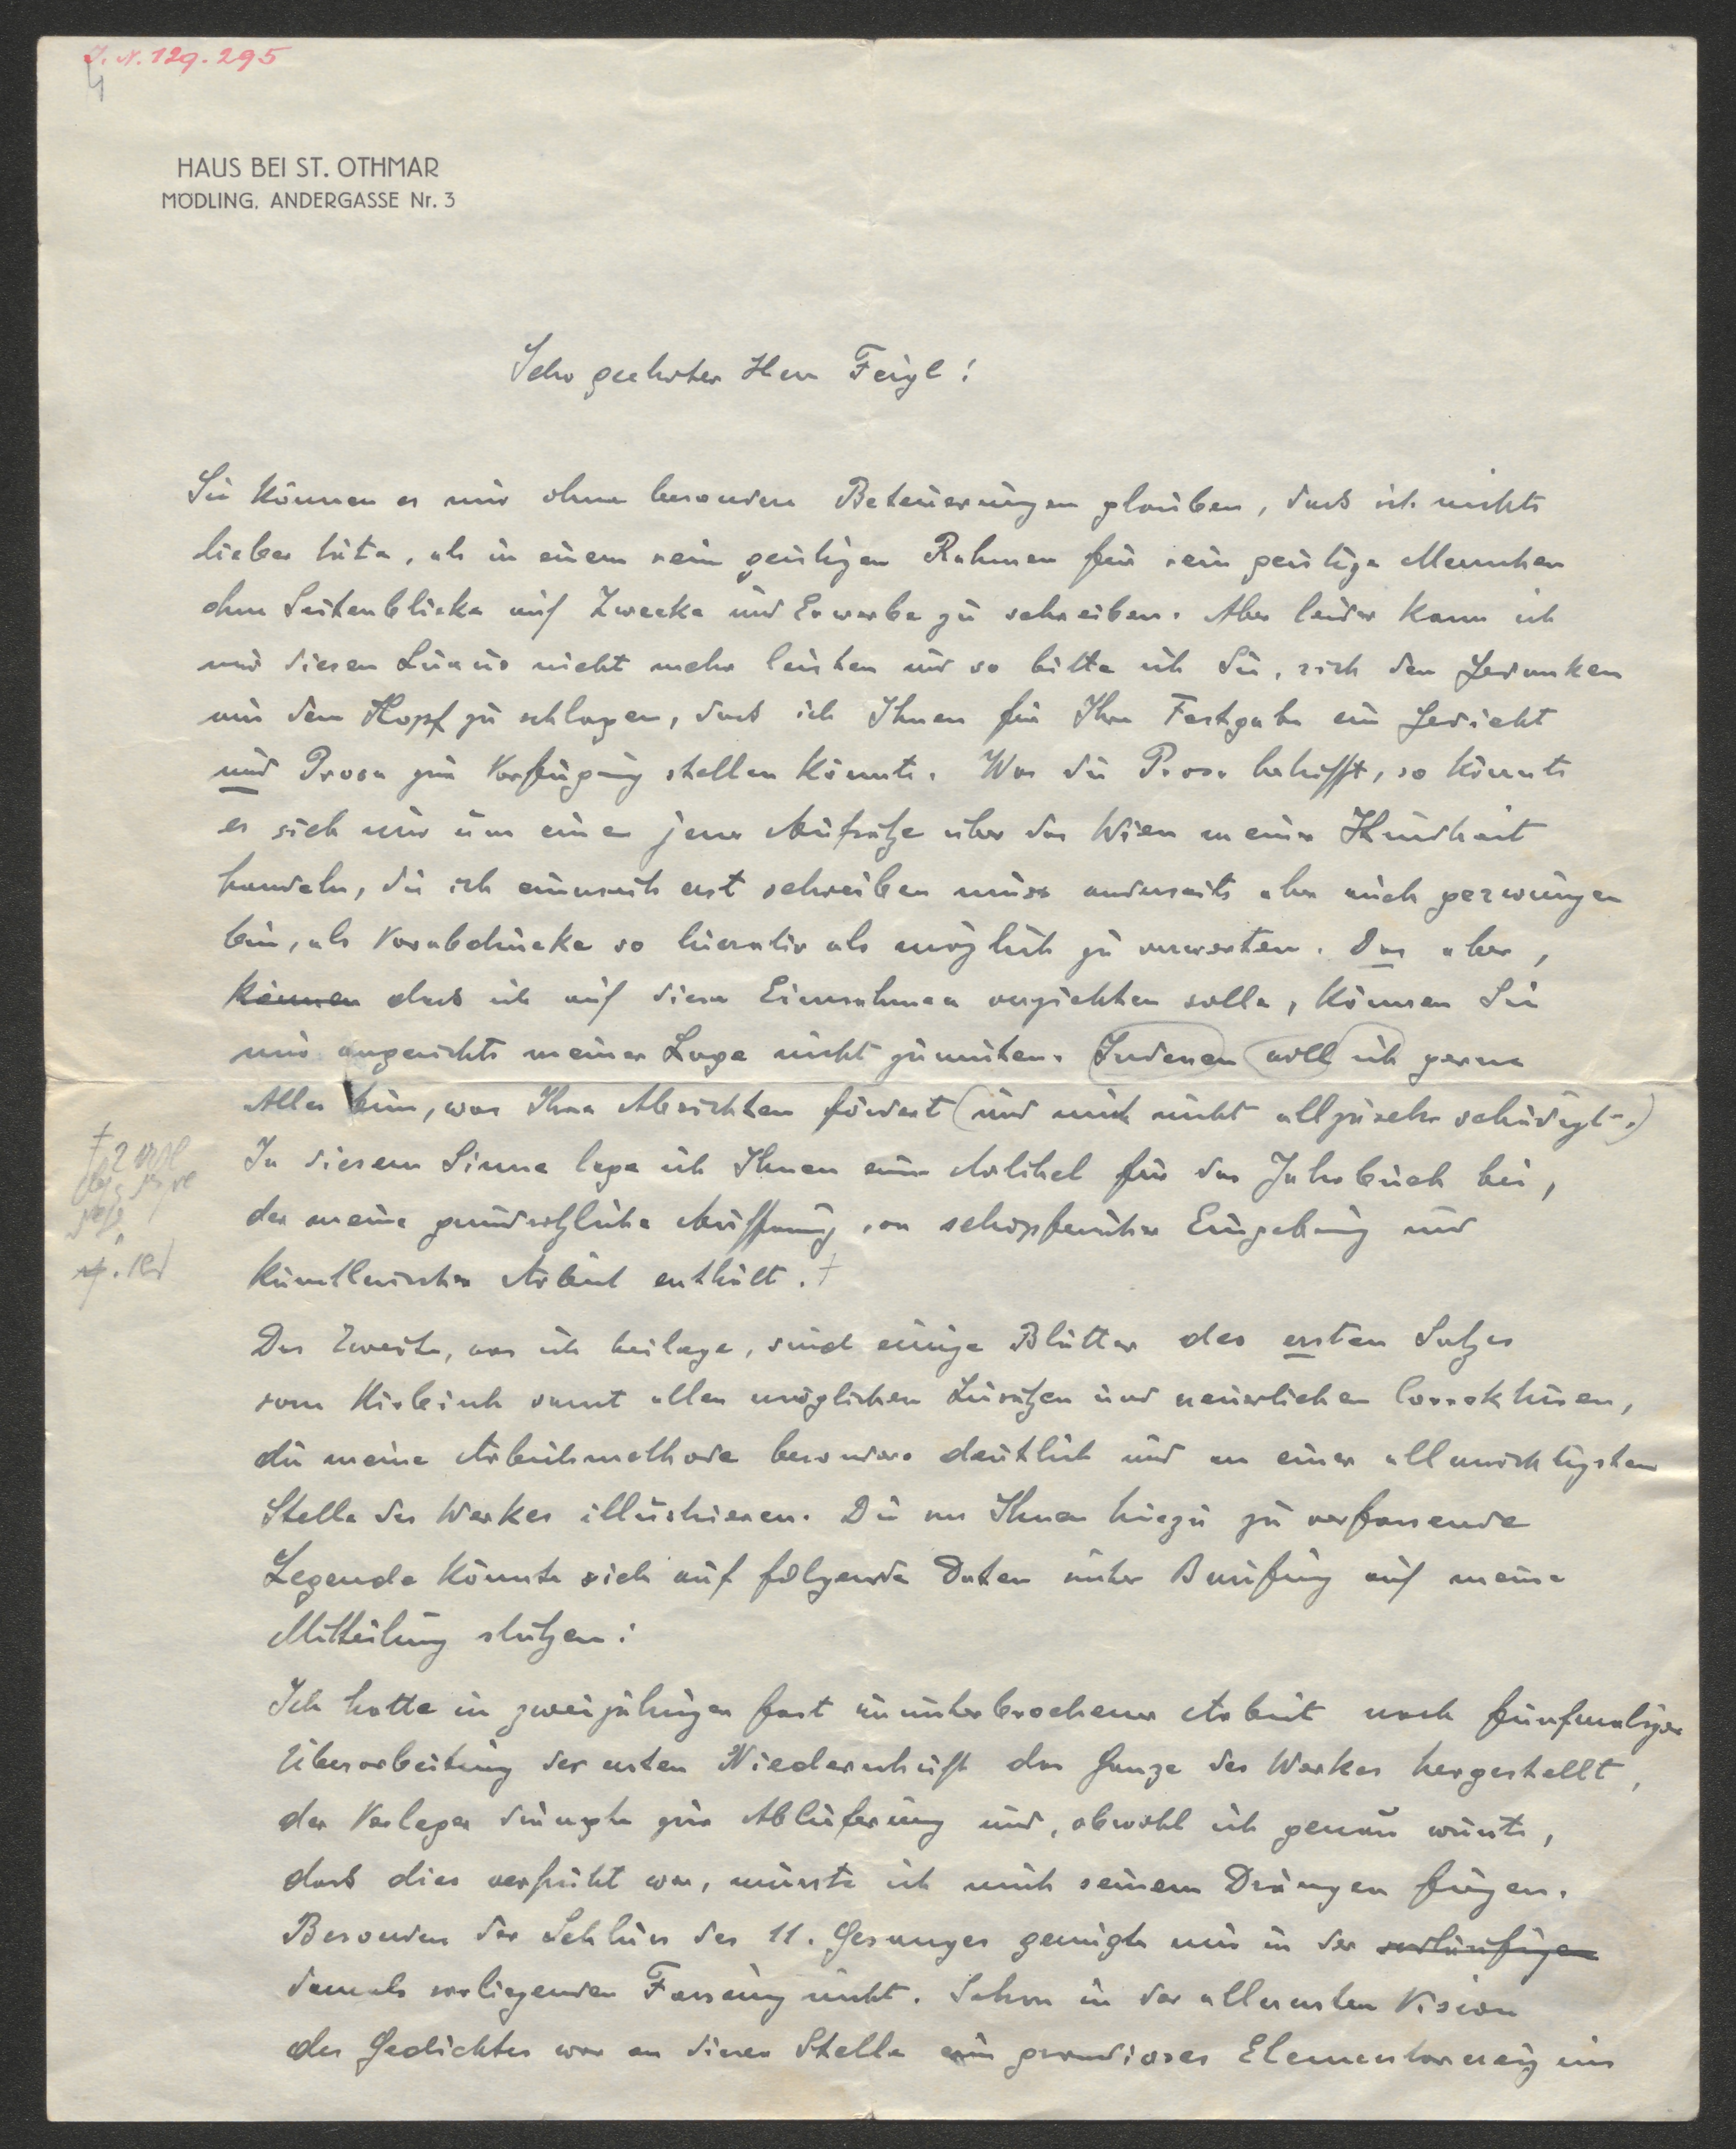 I. N. 129.295
4
HAUS BEI ST. OTHMAR
MÖDLING, ANDERGASSE Nr. 3
Sehr geehrter Herr Feigl!
Sie können es mir ohne besondere Beteuerungen glauben, dass ich nichts
lieber täte, als in einem rein geistigen Rahmen für rein geistige Menschen
ohne Seitenblicke auf Zwecke und Erwerbe zu schreiben. Aber leider kann ich
mir diesen Luxus nicht mehr leisten und so bitte ich Sie, sich den Gedanken
aus dem Kopf zu schlagen, dass ich Ihnen für Ihre Festgabe ein Gedicht
und Prosa zur Verfügung stellen könnte. Was die Prosa betrifft, so könnte
es sich nur um einen jener Aufsätze über das Wien meiner Kindheit
handeln, die ich einerseits erst schreiben muss anderseits aber auch gezwungen
bin, als Vorabdrucke so lucrativ als möglich zu verwerten. Das aber,
können dass ich auf diese Einnahmen verzichten solle, können Sie
mir angesichts meiner Lage nicht zumuten. Indessen will ich gerne
Alles tun, was Ihre Absichten fördert (und mich nicht allzusehr schädigt.)
In diesem Sinne lege ich Ihnen einen Artikel für das Jahrbuch bei,
der meine grundsätzliche Auffassung von schöpferischer Eingebung und
künstlerischer Arbeit enthält. +
Das Zweite, was ich beilege, sind einige Blätter des ersten Satzes
vom Kirbisch samt allen möglichen Zusätzen und neuerlichen Correkturen,
die meine Arbeitsmethode besonders deutlich und an einer allerwichtigsten
Stelle des Werkes illustrieren. Die von Ihnen hiezu zu verfassende
Legende könnte sich auf folgende Daten unter Berufung auf meine
Mitteilung stützen:
Ich hatte in zweijähriger fast ununterbrochener Arbeit nach fünfmaliger
Überarbeitung der ersten Niederschrift das Ganze des Werkes hergestellt,
der Verleger drängte zur Ablieferung und, obwohl ich genau wusste,
dass dies verfrüht war, musste ich mich seinem Drängen fügen.
Besonders der Schluss des 11. Gesanges genügte mir in der vorläufigen
damals vorliegenden Fassung nicht. Schon in der allerersten Vision
des Gedichtes war an dieser Stelle ein grandioses Elementarereignis